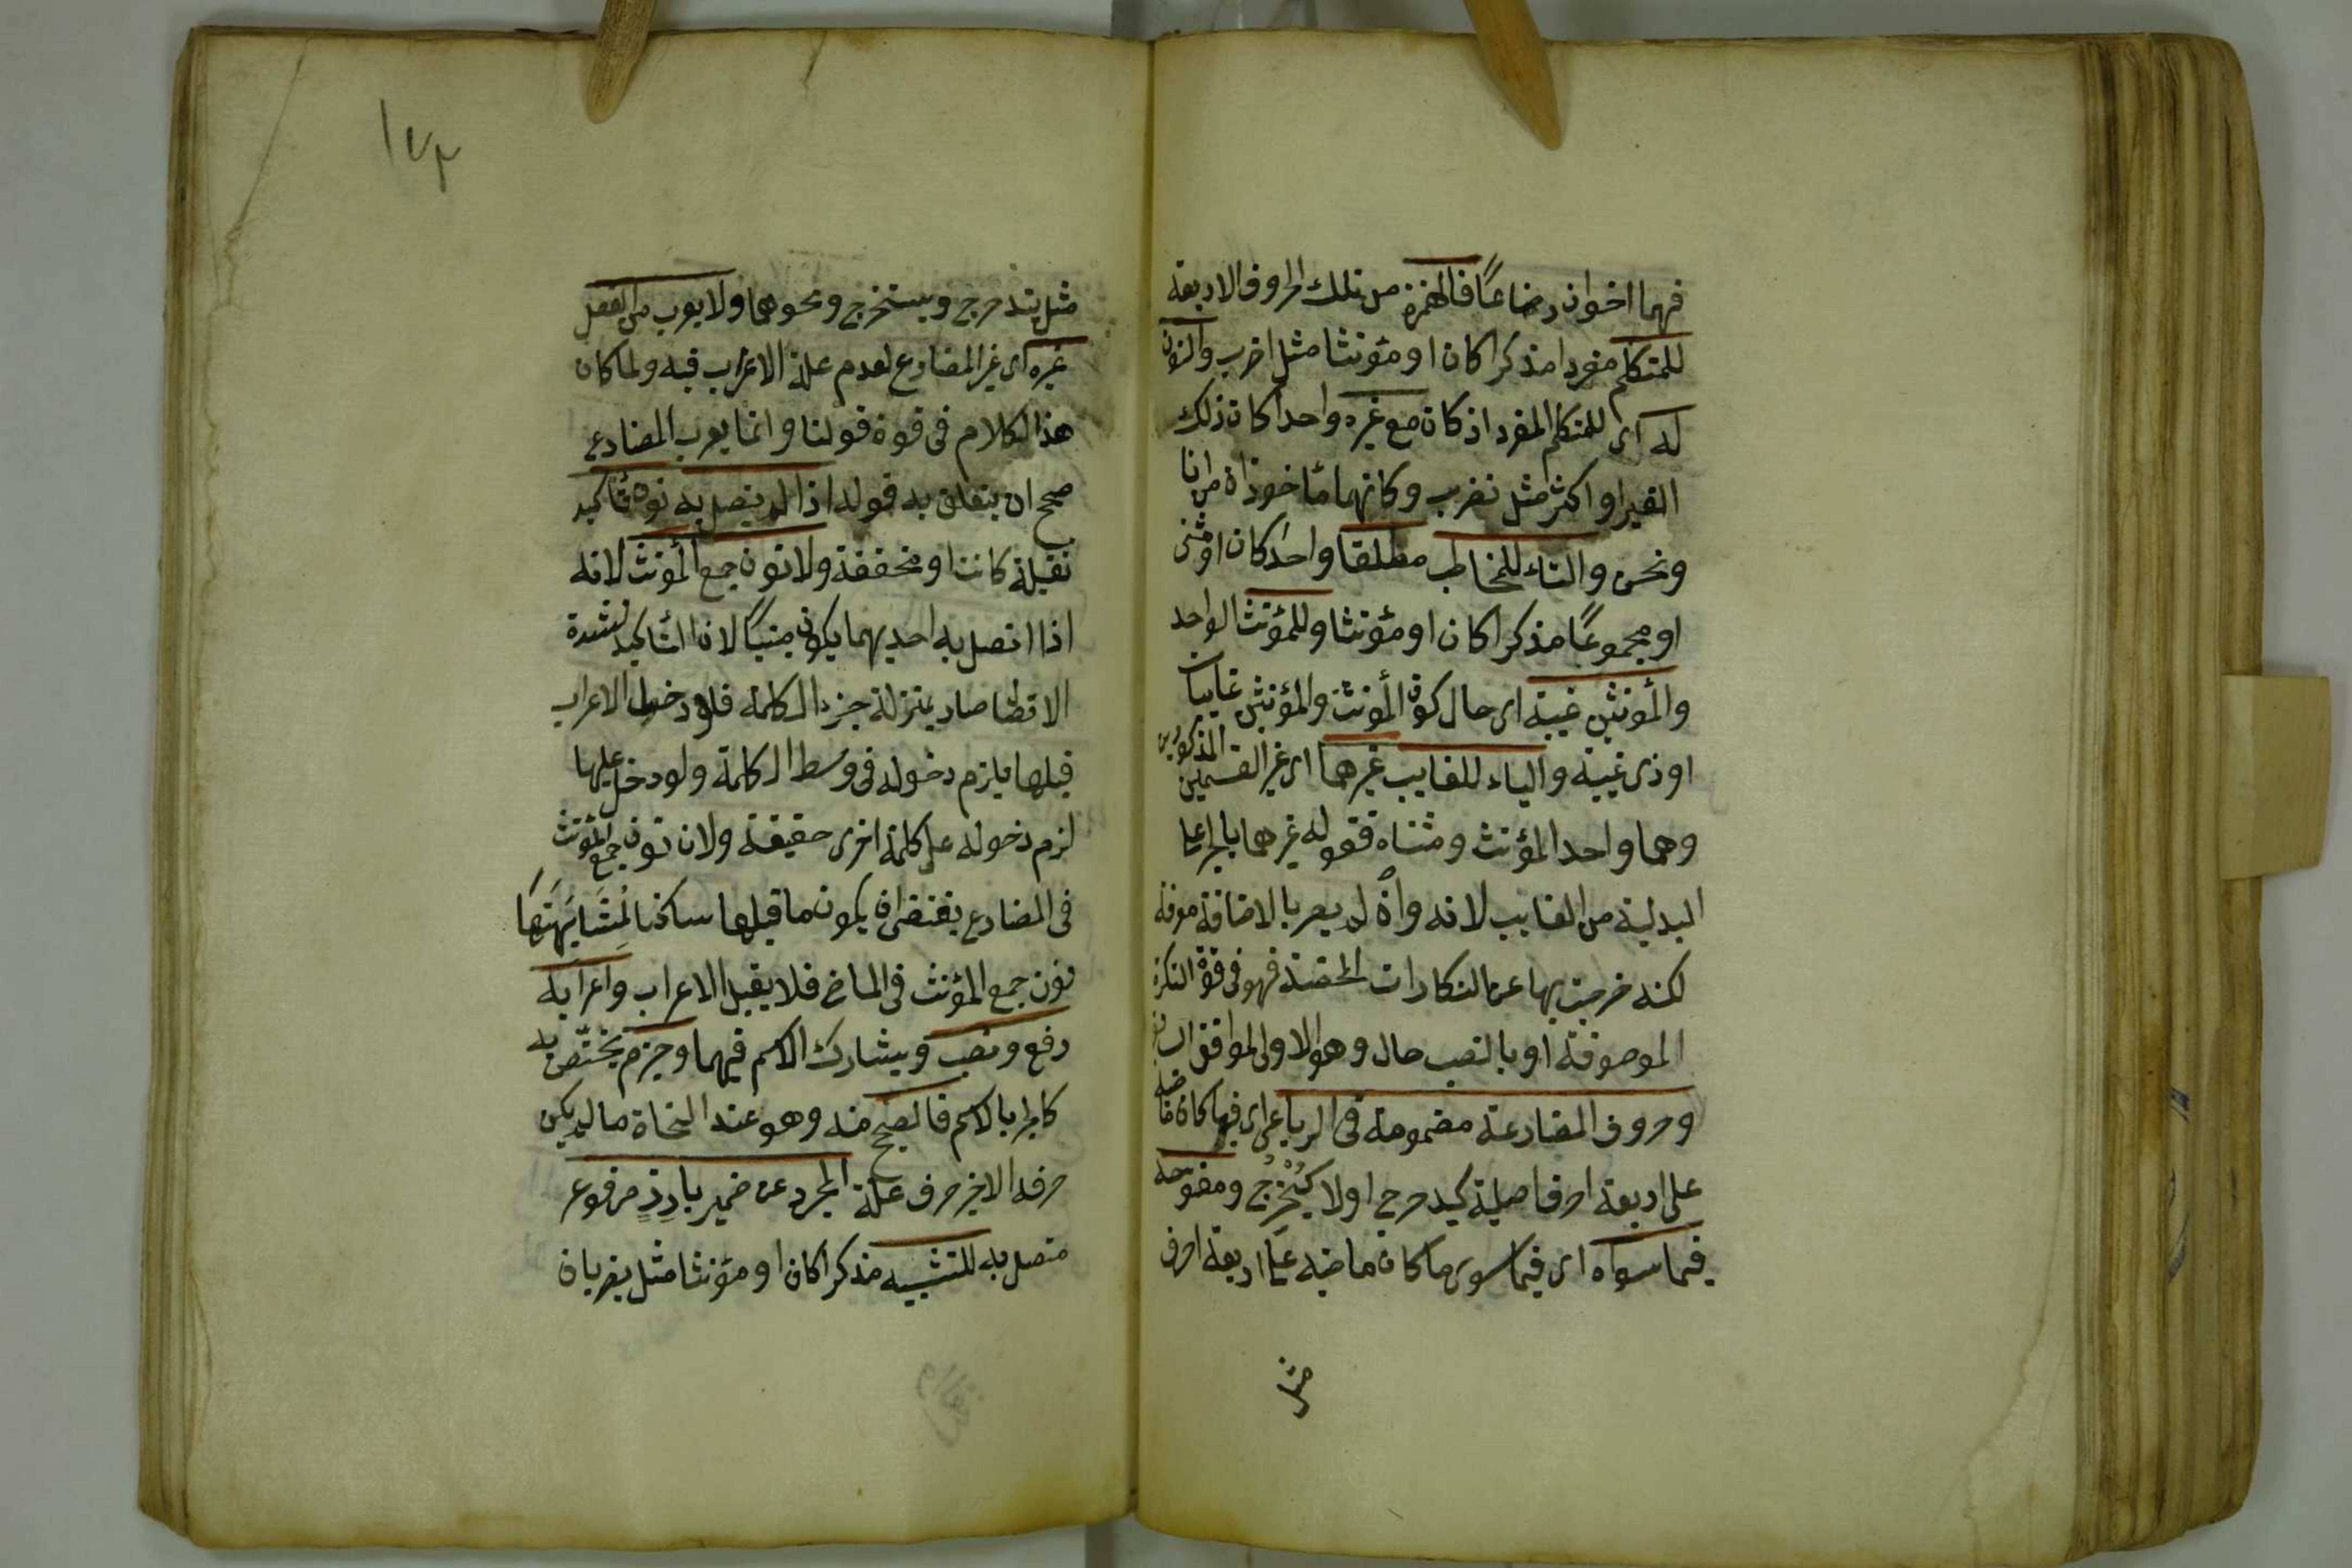 فهما اخوان رضاعًا فالهمزة من تلك الحروف الاربعة
للمتكلم مفردا مذكرا كان او مؤنثا مثل اضرب والنون
له اى للمتكلم المفرد اذ كان مع غيره واحدا كان ذلك
الغير او اكثر مثل نضرب وكانهما مأخوذاة من انا
ونحن والتاء للمخاطب مطلقا واحدا كان او مثنى
او مجموعًا مذكرا كان او مؤنثا وللمؤنث الواحد
والمؤنثين غيبة اى حال كون المؤنث والمؤنثين غايبات
او ذى غيبة والياء للغايب غيرهما اى غير القسمين المذكورين
وهما واحد المؤنث ومثناه فقوله غيرهما بالجر على
البدلية من الغايب لانه وان لم يصر بالاضافة معرفة
لكنه خرجت بها عن النكارات المحضة فهو فى قوة النكرة
الموصوفة او بالنصب حال وهو الاولى الموافق
وحروف المضارعة مضمومة فى الرباعى اى فيما كان ماضيه
على اربعة احرف اصلية كيدحرج اولا كيُخْرِجُ ومفتوحة
فيما سواه اى فيما سوى ما كان ماضيه على اربعة احرف
مثل
١٧٣
مثل يتدحرج ويستخرج ونحوهما ولا يعرب من الفعل
غيره اى غير المضارع لعدم علة الاعراب فيه ولما كان
هذا الكلام فى قوة قولنا وانما يعرب المضارع
صح ان يتعلق به قوله اذا لم يتصل به نون تأكيد
ثقيلة كانت او مخففة ولا نون جمع المؤنث لانه
اذا اتصل به احديهما يكون مبنيًا لان التأكيد لشدة
الاتصال صار بمنزلة جزء الكلمة فلو دخل الاعراب
قبلها يلزم دخوله فى وسط الكلمة ولو دخل عليها
لزم دخوله على كلمة اخرى حقيقة ولان نون جمع المؤنث
فى المضارع يقتضى ان يكون ما قبلها ساكنا لمشابهتها
نون جمع المؤنث فى الماضى فلا يقبل الاعراب واعرابه
رفع ونصب ويشارك الاسم فيهما وجزم يختص به
كالجر بالاسم فالصحيح منه وهو عند النحاة ما لم يكن
حرفه الاخير حرف علة المجرد عن ضمير بارز مرفوع
متصل به للتثنيه مذكرا كان او مؤنثا مثل يضربان